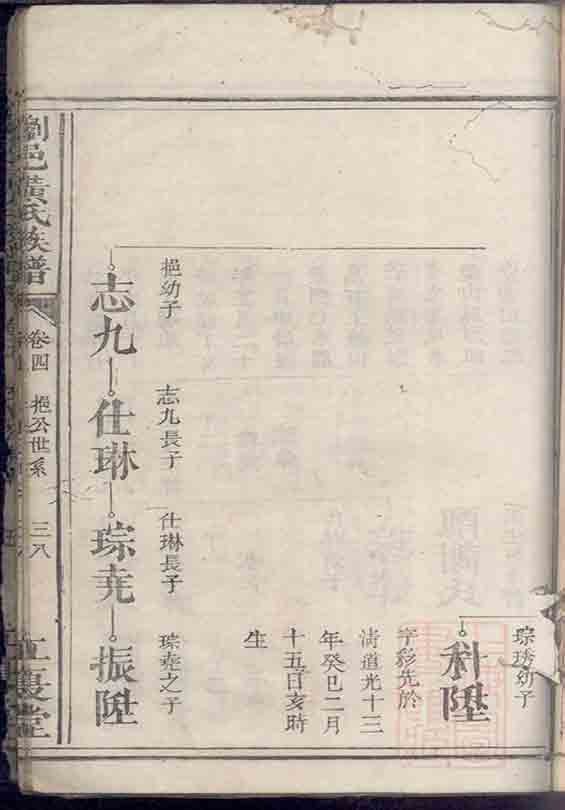 琮琇幼子
利陞
字彩先於
清道光十三
年癸巳二月
十五日亥時
生
挹幼子
志九
志九長子
仕琳
仕琳長子
琮堯
琮堯之子
振陞
劉邑黃氏族譜
卷四
挹公世系
三八
江夏堂